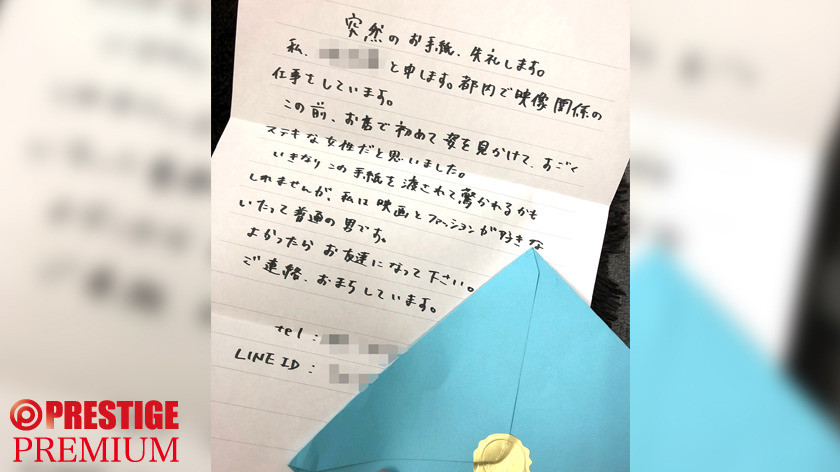 突然のお手紙、失礼します。
私、 と申します。都内で映像関係の
仕事をしています。
この前、お店で初めて姿を見かけて、すごく
ステキな女性だと思いました。
いきなりこの手紙を渡されて驚かれるかも
しれませんが、私は映画とファッションが好きな
いたって普通の男です。
よかったらお友達になって下さい。
ご連絡、おまちしています。
tel:
LINE ID:
PRESTIGE
PREMIUM